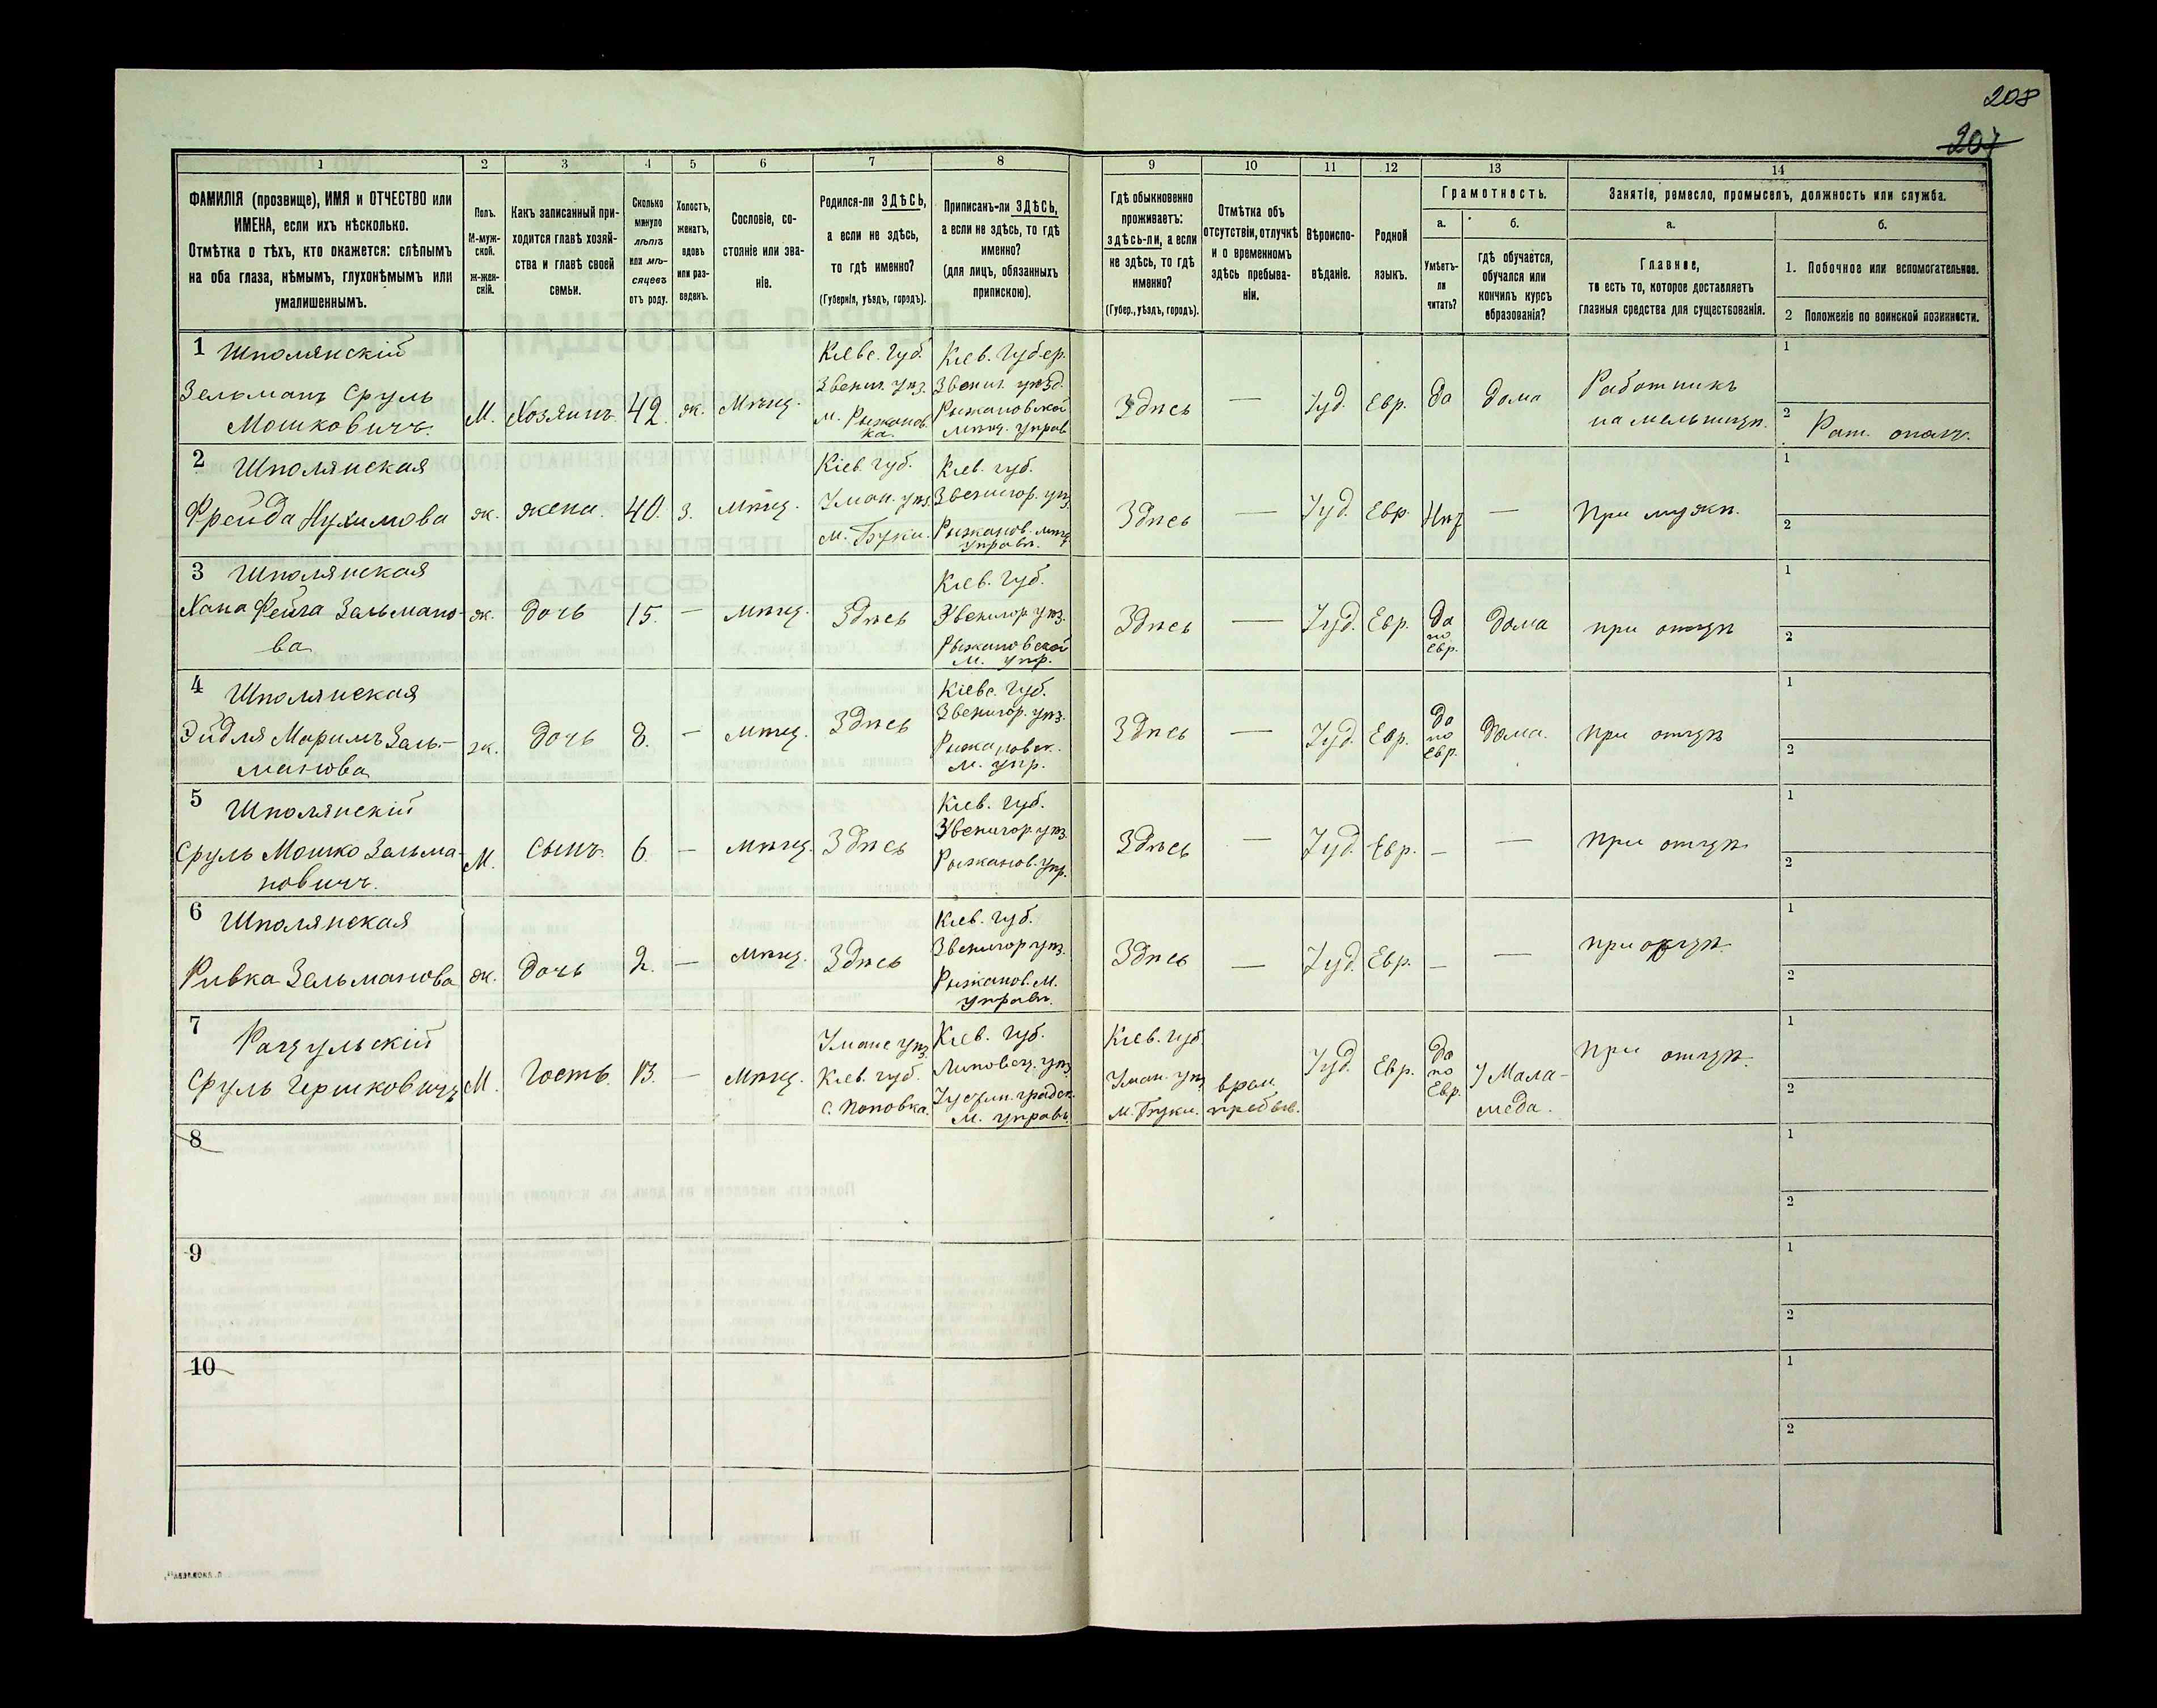 208
207
1
2
3
4
5
6
7
8
9
10
11
12
13
14
ФАМИЛІЯ (прозвище), ИМЯ и ОТЧЕСТВО или
ИМЕНА, если ихъ нѣсколько.
Отмѣтка о тѣхъ, кто окажется: слѣпымъ
на оба глаза, нѣмымъ, глухонѣмымъ или
умалишеннымъ.
Полъ.
М-муж-
ской.
Ж-жен-
скій.
Какъ записанный при-
ходится главѣ хозяй-
ства и главѣ своей
семьи.
Сколько
минуло
лѣтъ
или мѣ-
сяцевъ
отъ роду.
Холостъ,
женатъ,
вдовъ
или раз-
веденъ.
Сословіе, со-
стояніе или зва-
ніе.
Родился-ли ЗДѢСЬ,
а если не здѣсь,
то гдѣ именно?
(Губернія, уѣздъ, городъ).
Приписанъ-ли ЗДѢСЬ,
а если не здѣсь, то гдѣ
именно?
(для лицъ, обязанныхъ
припискою).
Гдѣ обыкновенно
проживаетъ:
здѣсь-ли, а если
не здѣсь, то гдѣ
именно?
(Губер., уѣздъ, городъ).
Отмѣтка объ
отсутствіи, отлучкѣ
и о временномъ
здѣсь пребыва-
ніи.
Вѣроиспо-
вѣданіе.
Родной
языкъ.
Грамотность.
а.
Умѣетъ-
ли
читать?
б.
гдѣ обучается,
обучался или
кончилъ курсъ
образованія?
Занятіе, ремесло, промыселъ, должность или служба.
а.
Главное,
то есть то, которое доставляетъ
главныя средства для существованія.
б.
1. Побочное или вспомогательное.
2 Положеніе по воинской повинности.
1 Шполянскій
Зельманъ Сруль
Мошковичъ.
М.
Хозяинъ
42.
ж.
Мѣщ.
Кіевс. губ.
Звениг. уѣз.
м. Рыжанов-
ка.
Кіев. губер.
Звениг. уѣзд.
Рыжановской
мѣщ. управ
Здѣсь
—
Іуд.
Евр.
да
дома
Работникъ
на мельницѣ.
1
2 Рат. опол.
2 Шполянская
Фрейда Нухимова
ж.
жена.
40.
з.
мѣщ.
Кіев. губ.
Уман. уѣз.
м. Буки.
Кіев. губ.
Звенигор. уѣз.
Рыжанов. мѣщ.
управл.
Здѣсь
—
Іуд.
Евр.
Нѣт
—
При мужѣ.
1
2
3 Шполянская
Хана Фейга Зельмано-
ва
ж.
дочь
15.
—
мѣщ.
Здѣсь
Кіев. губ.
Звенигор. уѣз.
Рыжановской
м. упр.
Здѣсь
—
Іуд.
Евр.
да
по
евр.
дома
при отцѣ
1
2
4 Шполянская
Эйдля Маримъ Зель-
манова
ж.
дочь
8.
—
мѣщ.
Здѣсь
Кіевс. губ.
Звенигор. уѣз.
Рыжановск.
м. упр.
Здѣсь
—
Іуд.
Евр.
да
по
евр.
дома.
при отцѣ
1
2
5 Шполянскій
Сруль Мошко Зельма-
новичъ.
М.
сынъ.
6.
—
мѣщ.
Здѣсь
Кіев. губ.
Звенигор. уѣз.
Рыжанов. упр.
Здѣсь
—
Іуд.
Евр.
—
—
при отцѣ
1
2
6 Шполянская
Ривка Зельманова
ж.
дочь
2.
—
мѣщ.
Здѣсь
Кіев. губ.
Звенигор уѣз.
Рыжанов. м.
управл.
Здѣсь
—
Іуд.
Евр.
—
—
при отцѣ
1
2
7
Сруль Гершковичъ
М.
Гость.
13.
—
мѣщ.
Уманс уѣз.
Кіев. губ.
с. Поповка.
Кіев. губ.
Липовец. уѣз.
м. управл.
Кіев. губ
Уман. уѣз
м. Буки.
врем.
пребыв.
Іуд.
Евр.
да
по
Евр.
У Мела-
меда.
при отцѣ.
1
2
8
1
2
9
1
2
10
1
2